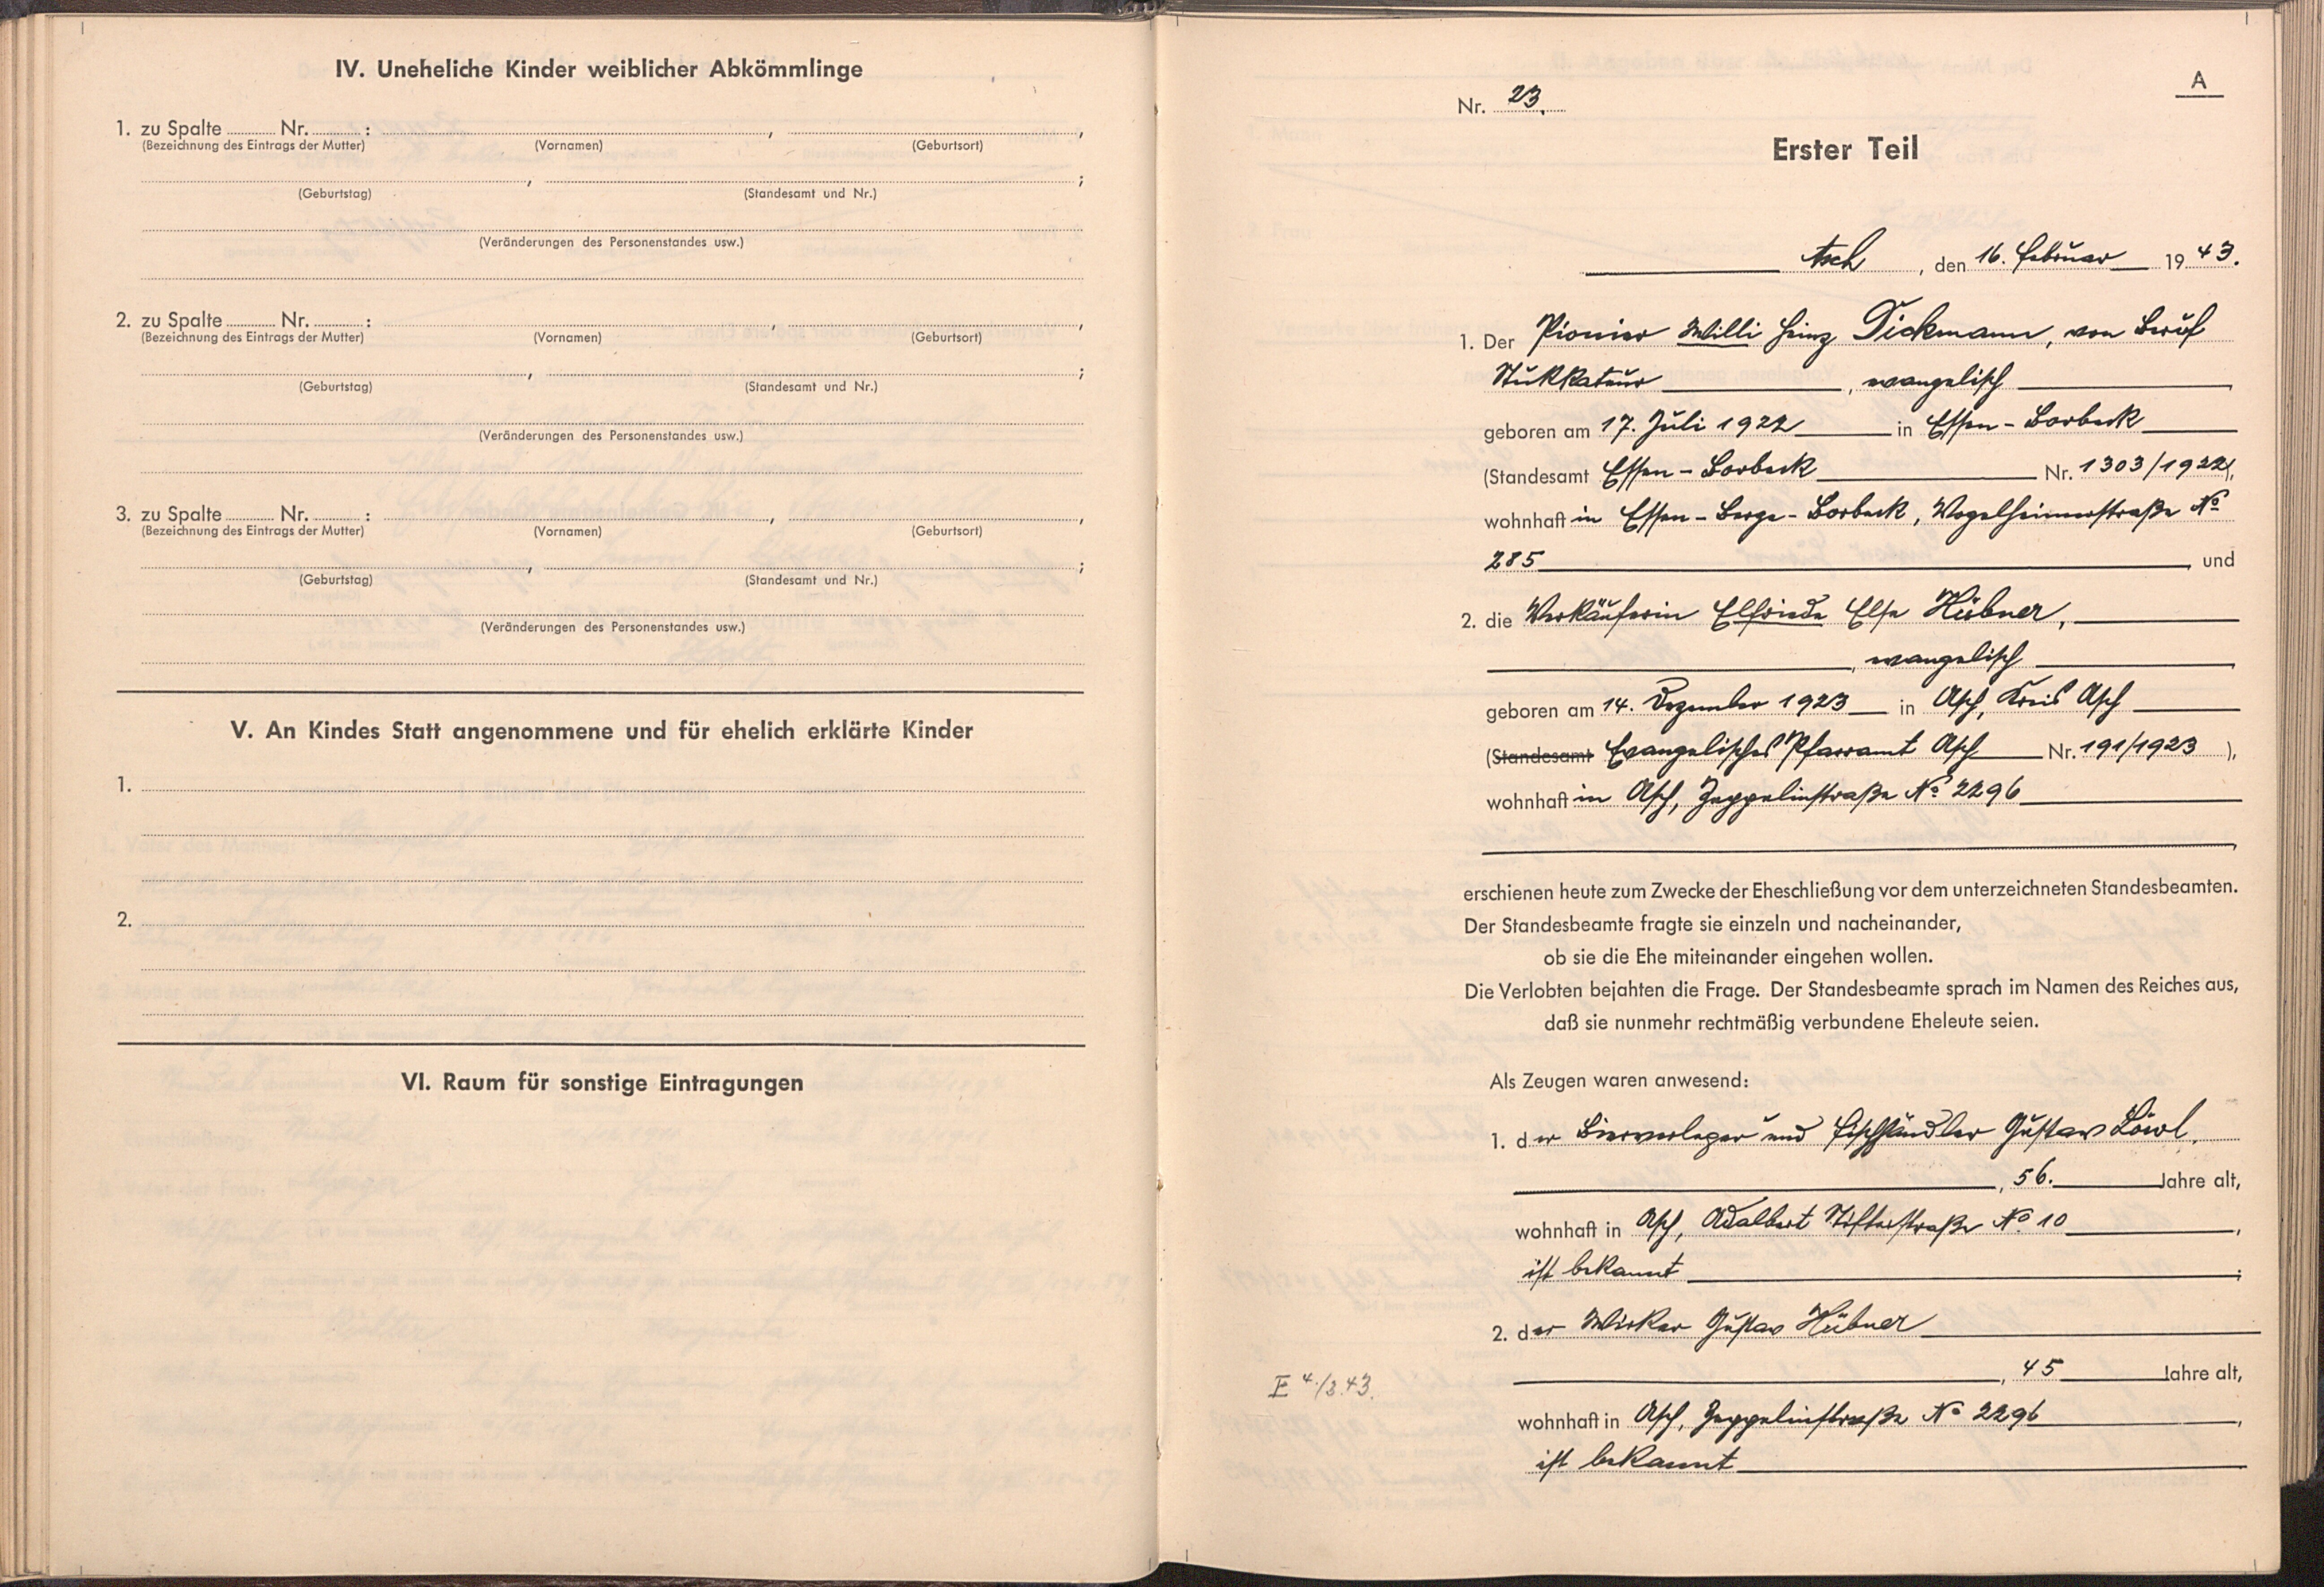 IV. Uneheliche Kinder weiblicher Abkömmlinge
1. zu Spalte Nr. : , ,
(Bezeichnung des Eintrags der Mutter) (Vornamen) (Geburtsort)
, ;
(Geburtstag) (Standesamt und Nr.)
(Veränderungen des Personenstandes usw.)
2. zu Spalte Nr. : , ,
(Bezeichnung des Eintrags der Mutter) (Vornamen) (Geburtsort)
, ;
(Geburtstag) (Standesamt und Nr.)
(Veränderungen des Personenstandes usw.)
3. zu Spalte Nr. : , ,
(Bezeichnung des Eintrags der Mutter) (Vornamen) (Geburtsort)
, ;
(Geburtstag) (Standesamt und Nr.)
(Veränderungen des Personenstandes usw.)
V. An Kindes Statt angenommene und für ehelich erklärte Kinder
1.
2.
VI. Raum für sonstige Eintragungen
A
Nr. 23.
Erster Teil
Asch, den 16. Februar 1943.
1. Der Pionier Willi Heinz Dickmann, von Beruf
Stukkateur, evangelisch,
geboren am 17. Juli 1922 in Essen-Borbeck
(Standesamt Essen-Borbeck Nr. 1303/1922),
wohnhaft in Essen-Berge-Borbeck, Vogelheimerstraße No
285, und
2. die Verkäuferin Elfriede Else Hübner,
, evangelisch,
geboren am 14. Dezember 1923 in Asch, Kreis Asch
(Standesamt Evangelisches Pfarramt Asch Nr. 191/1923),
wohnhaft in Asch, Zeppelinstraße No 2296
,
erschienen heute zum Zwecke der Eheschließung vor dem unterzeichneten Standesbeamten.
Der Standesbeamte fragte sie einzeln und nacheinander,
ob sie die Ehe miteinander eingehen wollen.
Die Verlobten bejahten die Frage. Der Standesbeamte sprach im Namen des Reiches aus,
daß sie nunmehr rechtmäßig verbundene Eheleute seien.
Als Zeugen waren anwesend:
1. der Bierverleger und Fischhändler Gustav Löwl,
, 56. Jahre alt,
wohnhaft in Asch, Adalbert Stifterstraße No. 10,
ist bekannt;
2. der Wirker Gustav Hübner
, 45 Jahre alt,
E 4./3.43.
wohnhaft in Asch, Zeppelinstraße No 2296,
ist bekannt